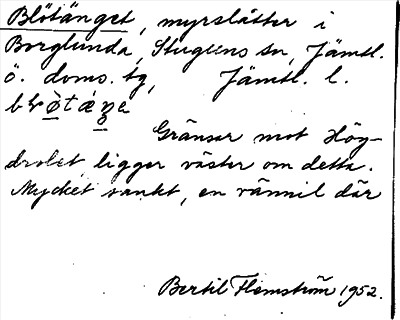 Blötänget, myrslåtter i
Borglunda, Stuguns sn, Jämtl.
ö. doms. tg, Jämtl. l.
Gränsar mot Hög-
drolet ligger väster om detta.
Mycket sankt, en vännil där
Bertil Flemström 1952.